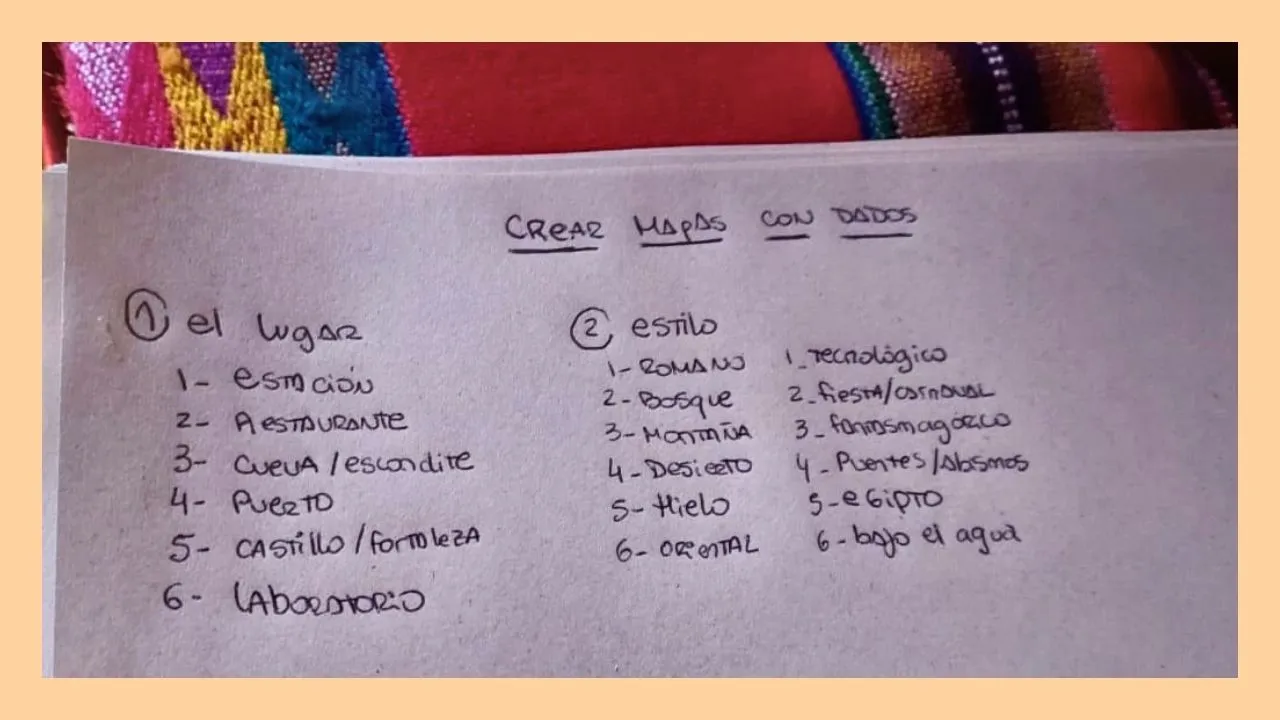 CREAR MAPAS CON DADOS
1 el lugar
1- estación
2- Restaurante
3- cueva/escondite
4- Puerto
5- castillo/fortoleza
6- laboratorio
2 estilo
1- Romano
2- Bosque
3- Montaña
4- Desierto
5- Hielo
6- oriental
1- Tecnológico
2- fiesta/carnaval
3- fantasmagórico
4- Puentes/Abismos
5- egipto
6- bajo el agua